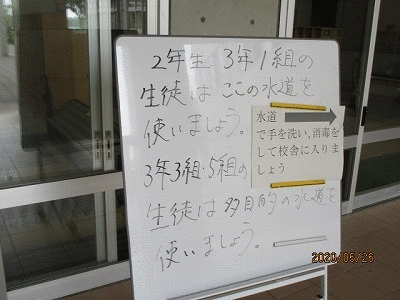 2年生 3年1組の
生徒は ここの水道を
使いましょう。
水道
で手を洗い、消毒を
して校舎に入りま
しょう
3年3組・5組の
生徒は 多目的の水道を
使いましょう。
2020/05/26